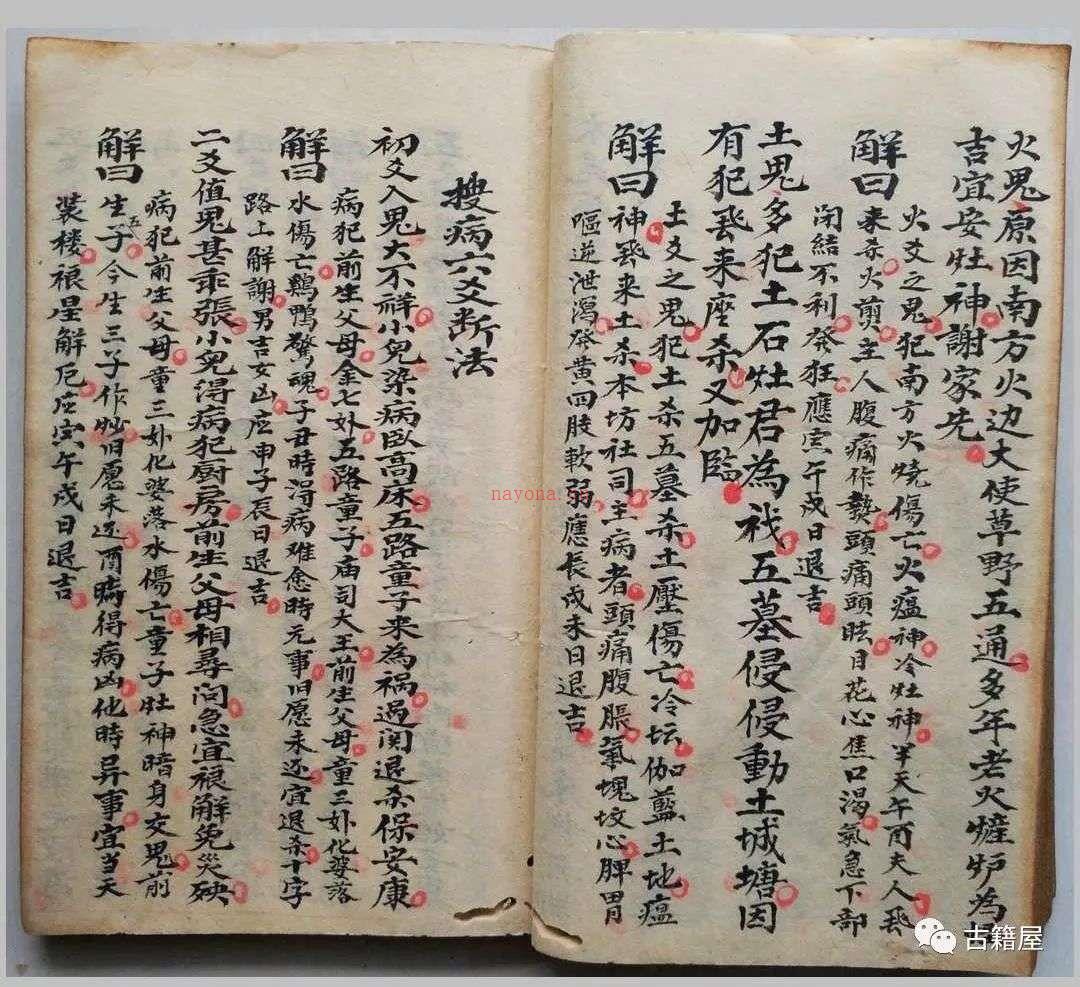 火鬼原因南方火边大使草野五通多年老火㷟炉為
吉宜安灶神謝家先
火爻之鬼犯南方火燒傷亡火瘟神冷灶神半天午酉夫人飛
解曰
来杀火煎主人腹痛作熱頭痛頭眩目花心焦口渴氣急下部
闭結不利發狂應寅午戌日退吉
土鬼多犯土石灶君為戏五墓侵侵動土城塘因
有犯飛来座杀又加臨
土爻之鬼犯土杀五墓杀土壓傷亡冷坛伽藍土地瘟
解曰
神飛来土杀本坊社司主病者頭痛腹脹氣塊坟心脾胃
嘔逆泄瀉發黄四肢軟弱應辰戌未日退吉
搜病六爻断法
初爻入鬼大不祥小兒染病臥高床五路童子来為禍过関退杀保安康
病犯前生父母金七外五路童子庙司大王前生父母童三外化婆落
解曰
水傷亡鷄鴨驚魂子丑時得病难愈時元事旧愿未还宜退杀十字
路上解謝男吉女凶应申子辰日退吉
二爻值鬼甚乖張小兒得病犯厨房前生父母相尋问急宜禳解免災殃
病犯前生父母童三外化婆落水傷亡童子灶神暗身交鬼前
解曰
生五子今生三子作炒旧愿未还酉時得病凶他時异事宜当天
装楼禳星解厄应寅午戌日退吉
nayona.cn
古籍屋